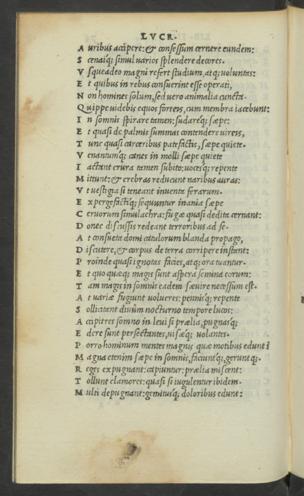 LVCR.
A uribus accipere: & confessum cernere eundem:
S cenaiq; simul varios splendere decores.
V sque adeo magni refert studium, atq; voluntas:
E t quibus in rebus consuerint esse operati,
N on homines solum, sed vero animalia cuncta.
Q uippe videbis equos forteis, cum membra iacebunt:
I n somnis spirare tamen: sudareq; sæpe:
E t quasi de palmis summas contendere vireis,
T unc quasi carceribus patefactis, sæpe quiete
V enantumq; canes in molli sæpe quiete
I actant crura tamen subito: uoces'q; repente
M ittunt: & crebras reducunt naribus auras:
V t uestigia si teneant inuenta ferarum.
E xpergefactiq; sequuntur inania sæpe
C eruorum simulachra: fugæ quasi dedita cernant:
D onec discussis redeant terroribus ad se.
A t consueta domi catulorum blanda propago,
D iscutere, & corpus de terra corripere instant:
P roinde quasi ignotas facies, atq; ora tuantur.
E t quo quæq; magis sunt aspera semina eorum:
T am magis in somnis eadem sæuire necessum est.
A t variæ fugiunt volucres: pennisq; repente
S ollicitant diuûm nocturno tempore lucos:
A ccipitres somno in leui si prælia, pugnasq;
E dere sunt persectantes, uisæq; volantes.
P orro hominum mentes magnis quæ motibus edunt
M agna etenim sæpe in somnis, faciuntq; geruntq;
R eges expugnant: capiuntur: prælia miscent:
T ollunt clamores: quasi si iugulentur ibidem.
M ulti depugnant: gemitusq; doloribus edunt: